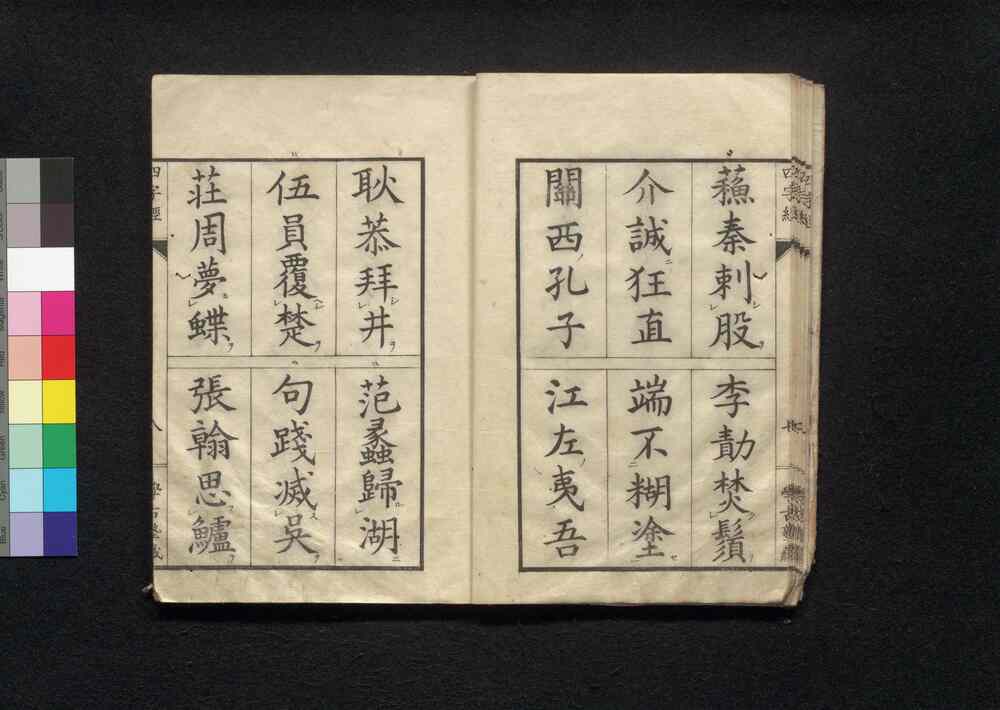 蘇秦刺股
李勣焚鬚
介誠狂直
端不糊塗
關西孔子
江左夷吾
耿恭拜井
范蠡歸湖
伍員覆楚
句踐滅吳
荘周夢蝶
張翰思鱸
四字經